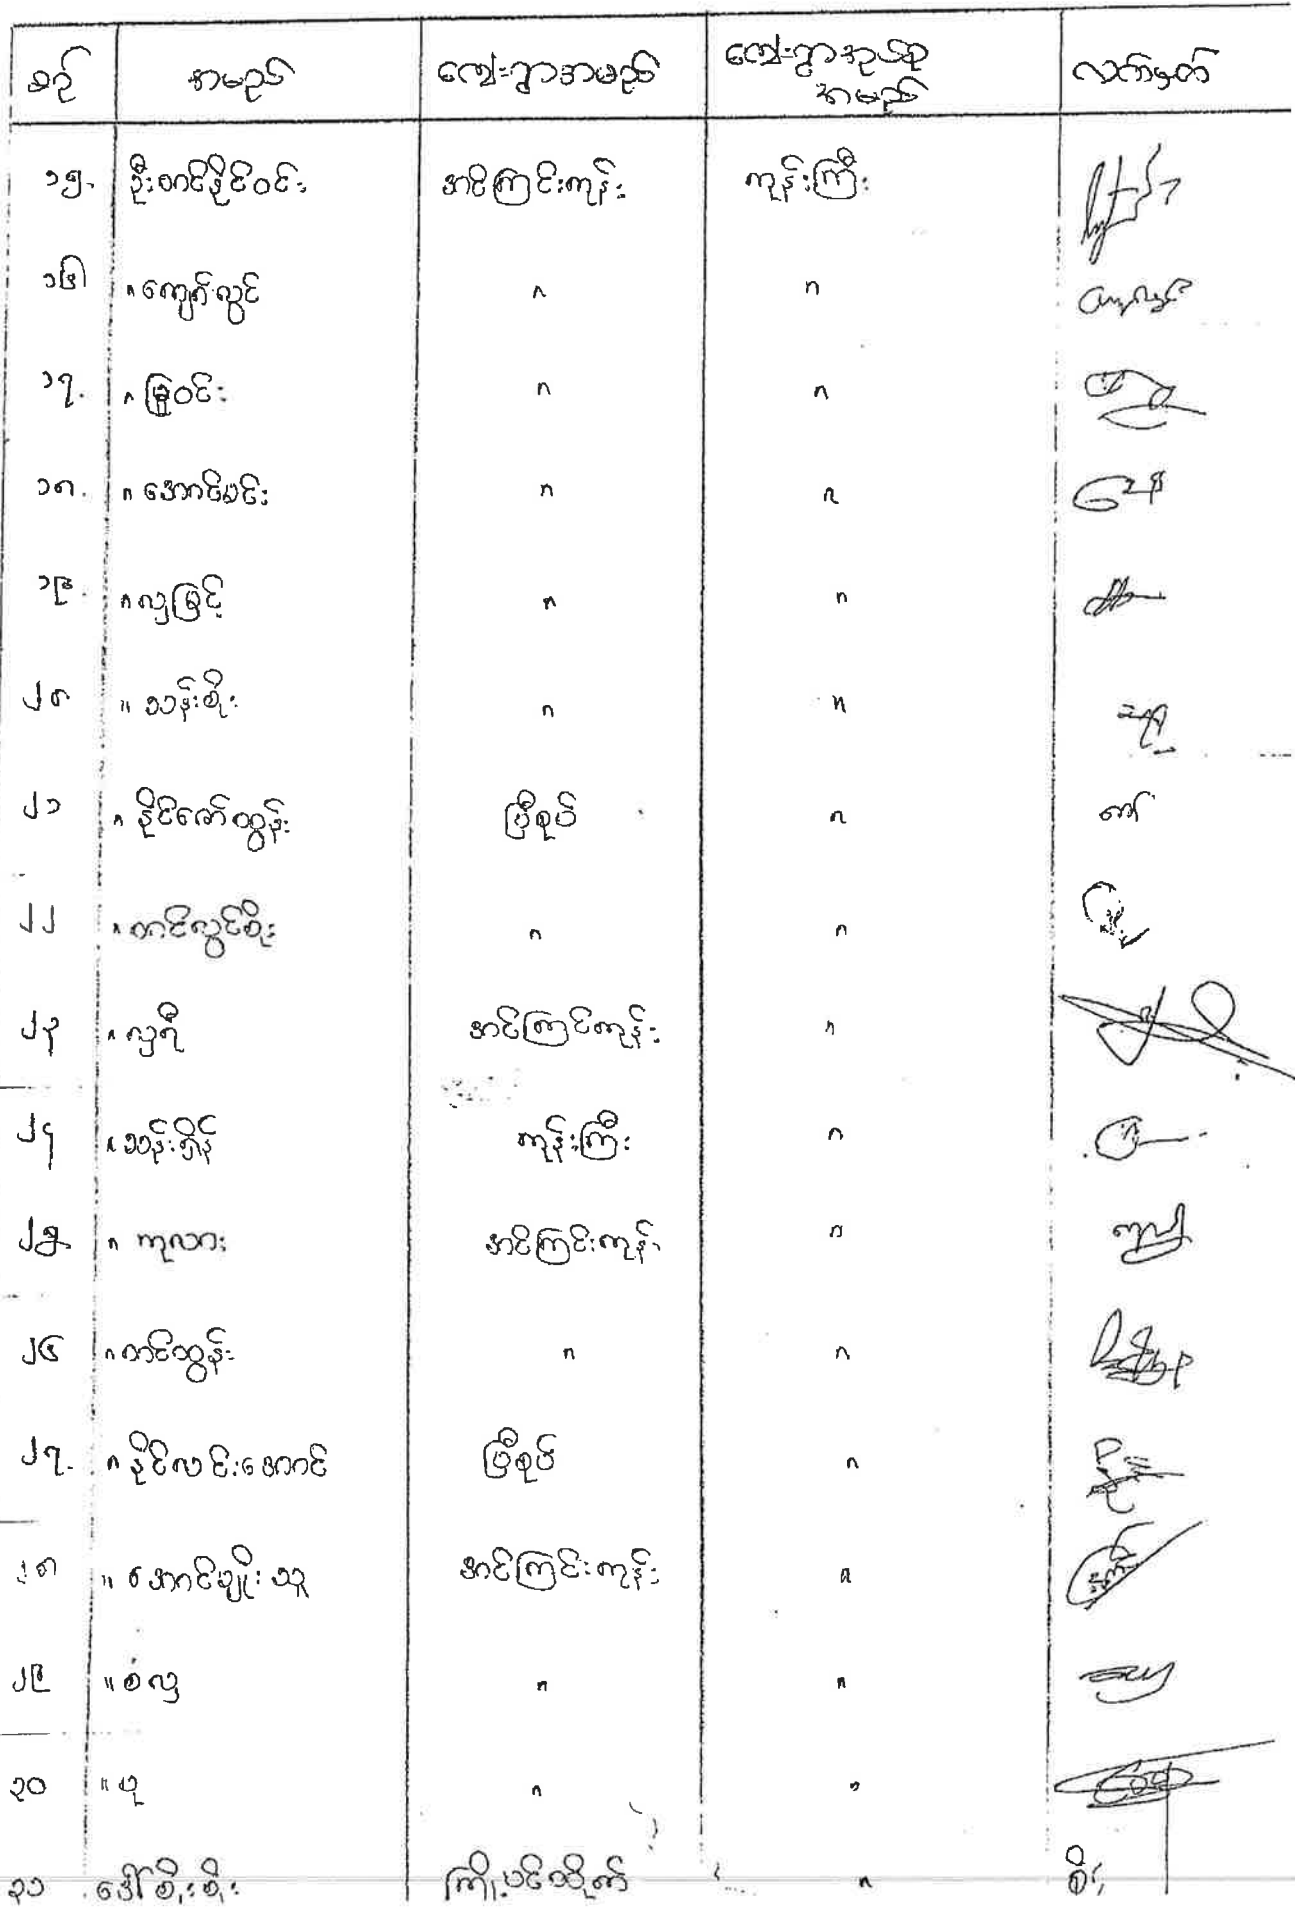 စဉ် အမည် ကျေးရွာအမည် ကျေးရွာအုပ်စု အမည် လက်မှတ်
၁၅. ဦးတင်နိုင်ဝင်း အင်ကြင်းကုန်း ကုန်းကြီး
၁၆ " ကျော်လွင် " "
၁၇. " မြဝင်း " "
၁၈. " အောင်မင်း " "
၁၉. " လှမြင့် " "
၂၀ " သန်းစိုး " "
၂၁ " နိုင်ဇော်ထွန်း ပြီစုပ် "
၂၂ " တင်လွင်စိုး " "
၂၃ " လှရီ အင်ကြင်ကုန်း "
၂၄ " သန်းရှိန် ကုန်းကြီး "
၂၅. " ကုလား အင်ကြင်းကုန်း "
၂၆ " တင်ထွန်း " "
၂၇. " နိုင်လင်းအောင် ပြီစုပ် "
၂၈ " အောင်မျိုးသူ အင်ကြင်းကုန်း "
၂၉ " စံလှ " "
၃၀ " ပု " "
၃၁ ဒေါ်စိုးစိုး ကြို့ပင်သိုက် "